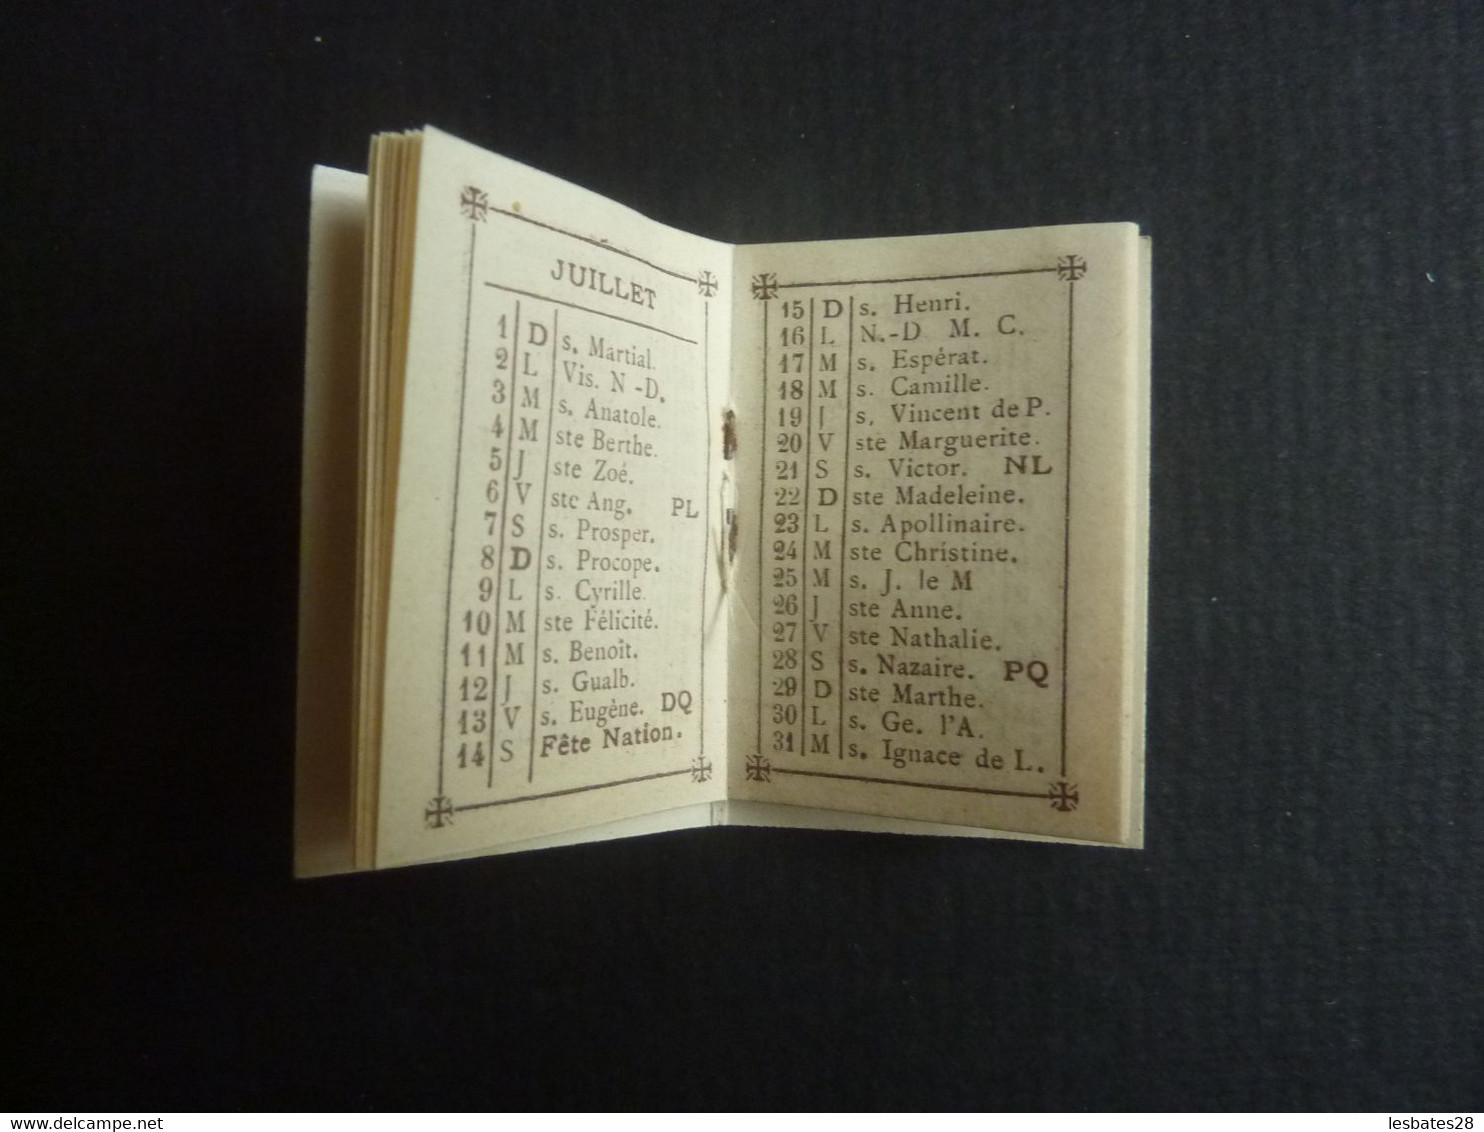 JUILLET
1 D s. Martial.
2 L Vis. N-D.
3 M s. Anatole.
4 M ste Berthe.
5 J ste Zoé.
6 V ste Ang. PL
7 S s. Prosper.
8 D s. Procope.
9 L s. Cyrille.
10 M ste Félicité.
11 M s. Benoît.
12 J s. Gualb.
13 V s. Eugène. DQ
14 S Fête Nation.
15 D s. Henri.
16 L N.-D M. C.
17 M s. Espérat.
18 M s. Camille.
19 J s. Vincent de P.
20 V ste Marguerite.
21 S s. Victor. NL
22 D ste Madeleine.
23 L s. Apollinaire.
24 M ste Christine.
25 M s. J. le M
26 J ste Anne.
27 V ste Nathalie.
28 S s. Nazaire. PQ
29 D ste Marthe.
30 L s. Ge. l'A.
31 M s. Ignace de L.
delcampe.net
lesbates28